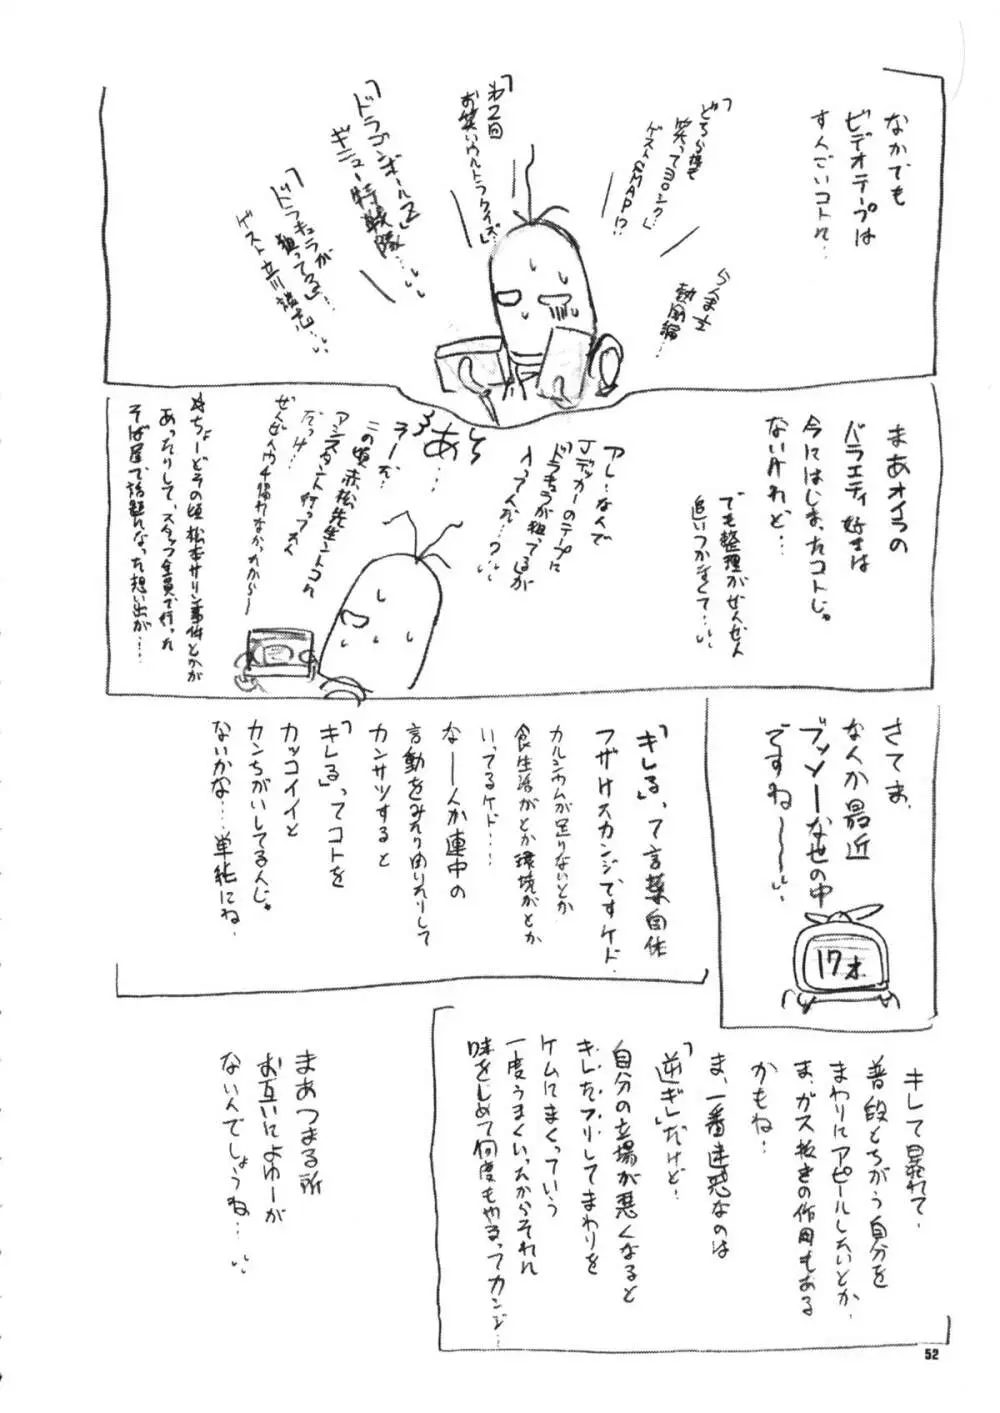 なかでも
ビデオテープは
すんごいコトに…
らんま½
熱闘編…
「どちら様も
笑ってヨロシク」
ゲストSMAP!?
「第2回
お笑いウルトラクイズ」
「ドラゴンボールZ」
ギニュー特戦隊…
「ドラキュラが
狙ってる」…
ゲスト立川談志
まあオイラの
バラエティ好きは
今にはじまったコトじゃ
ないけれど…
でも整理がぜんぜん
追いつかなくて…
アレ…なんで
Jデッカーのテープに
「ドラキュラが狙ってる」が
入ってんだ…?
あ…
そうだ…
この頃赤松先生ントコに
アシスタント行ってたん
だっけ…
ぜんぜんウチ帰れなかったから〜
ちょーどその頃松本サリン事件とかが
あったりして、スタッフ全員で行った
そば屋で話題になった想い出が…
さてま、
なんか最近
ブッソーな世の中
ですね〜〜
17才
「キレる」って言葉自体
フザけたカンジですケド、
カルシウムが足りないとか
食生活がとか環境がとか
いってるケド…
な――んか連中の
言動をみたりきいたりして
カンサツすると
「キレる」ってコトを
カッコイイと
カンちがいしてるんじゃ
ないかな…単純にね。
キレて暴れて、
普段とちがう自分を
まわりにアピールしたいとか、
ま、ガス抜きの作用もある
かもね…
ま、一番迷惑なのは
「逆ギレ」だけど…
自分の立場が悪くなると
キレたフリしてまわりを
ケムにまくっていう
一度うまくいったからそれに
味をしめて何度もやるってカンジ…
まあつまる所
お互いによゆーが
ないんでしょうね…
52